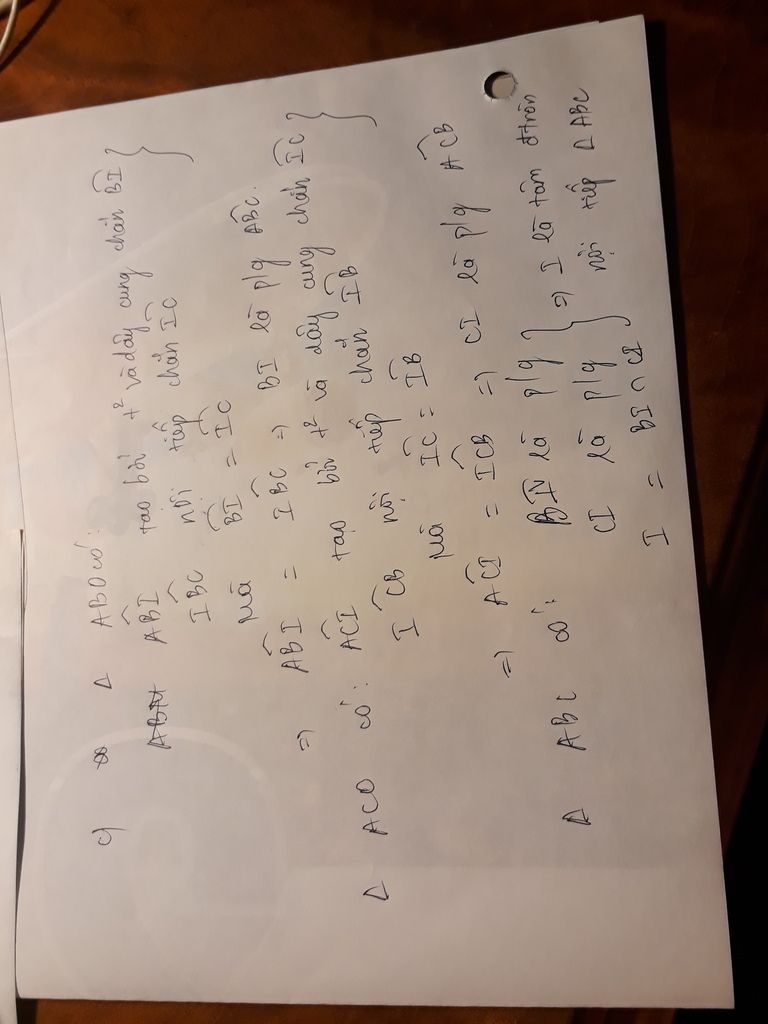 c) Δ ABO có:
ABN ABI tạo bởi t² và dây cung chắn BI }
IBC nội tiếp chắn IC
Mà BI = IC
=) ABI = IBC =) BI là p/g ABC.
Δ ACO có: ACI tạo bởi t² và dây cung chắn IC }
ICB nội tiếp chắn IB
Mà IC = IB
=) ACI = ICB =) CI là p/g ACB
Δ ABC có: BI là p/g } =) I là tâm đtròn
CI là p/g nội tiếp Δ ABC
I = BI ∩ CI